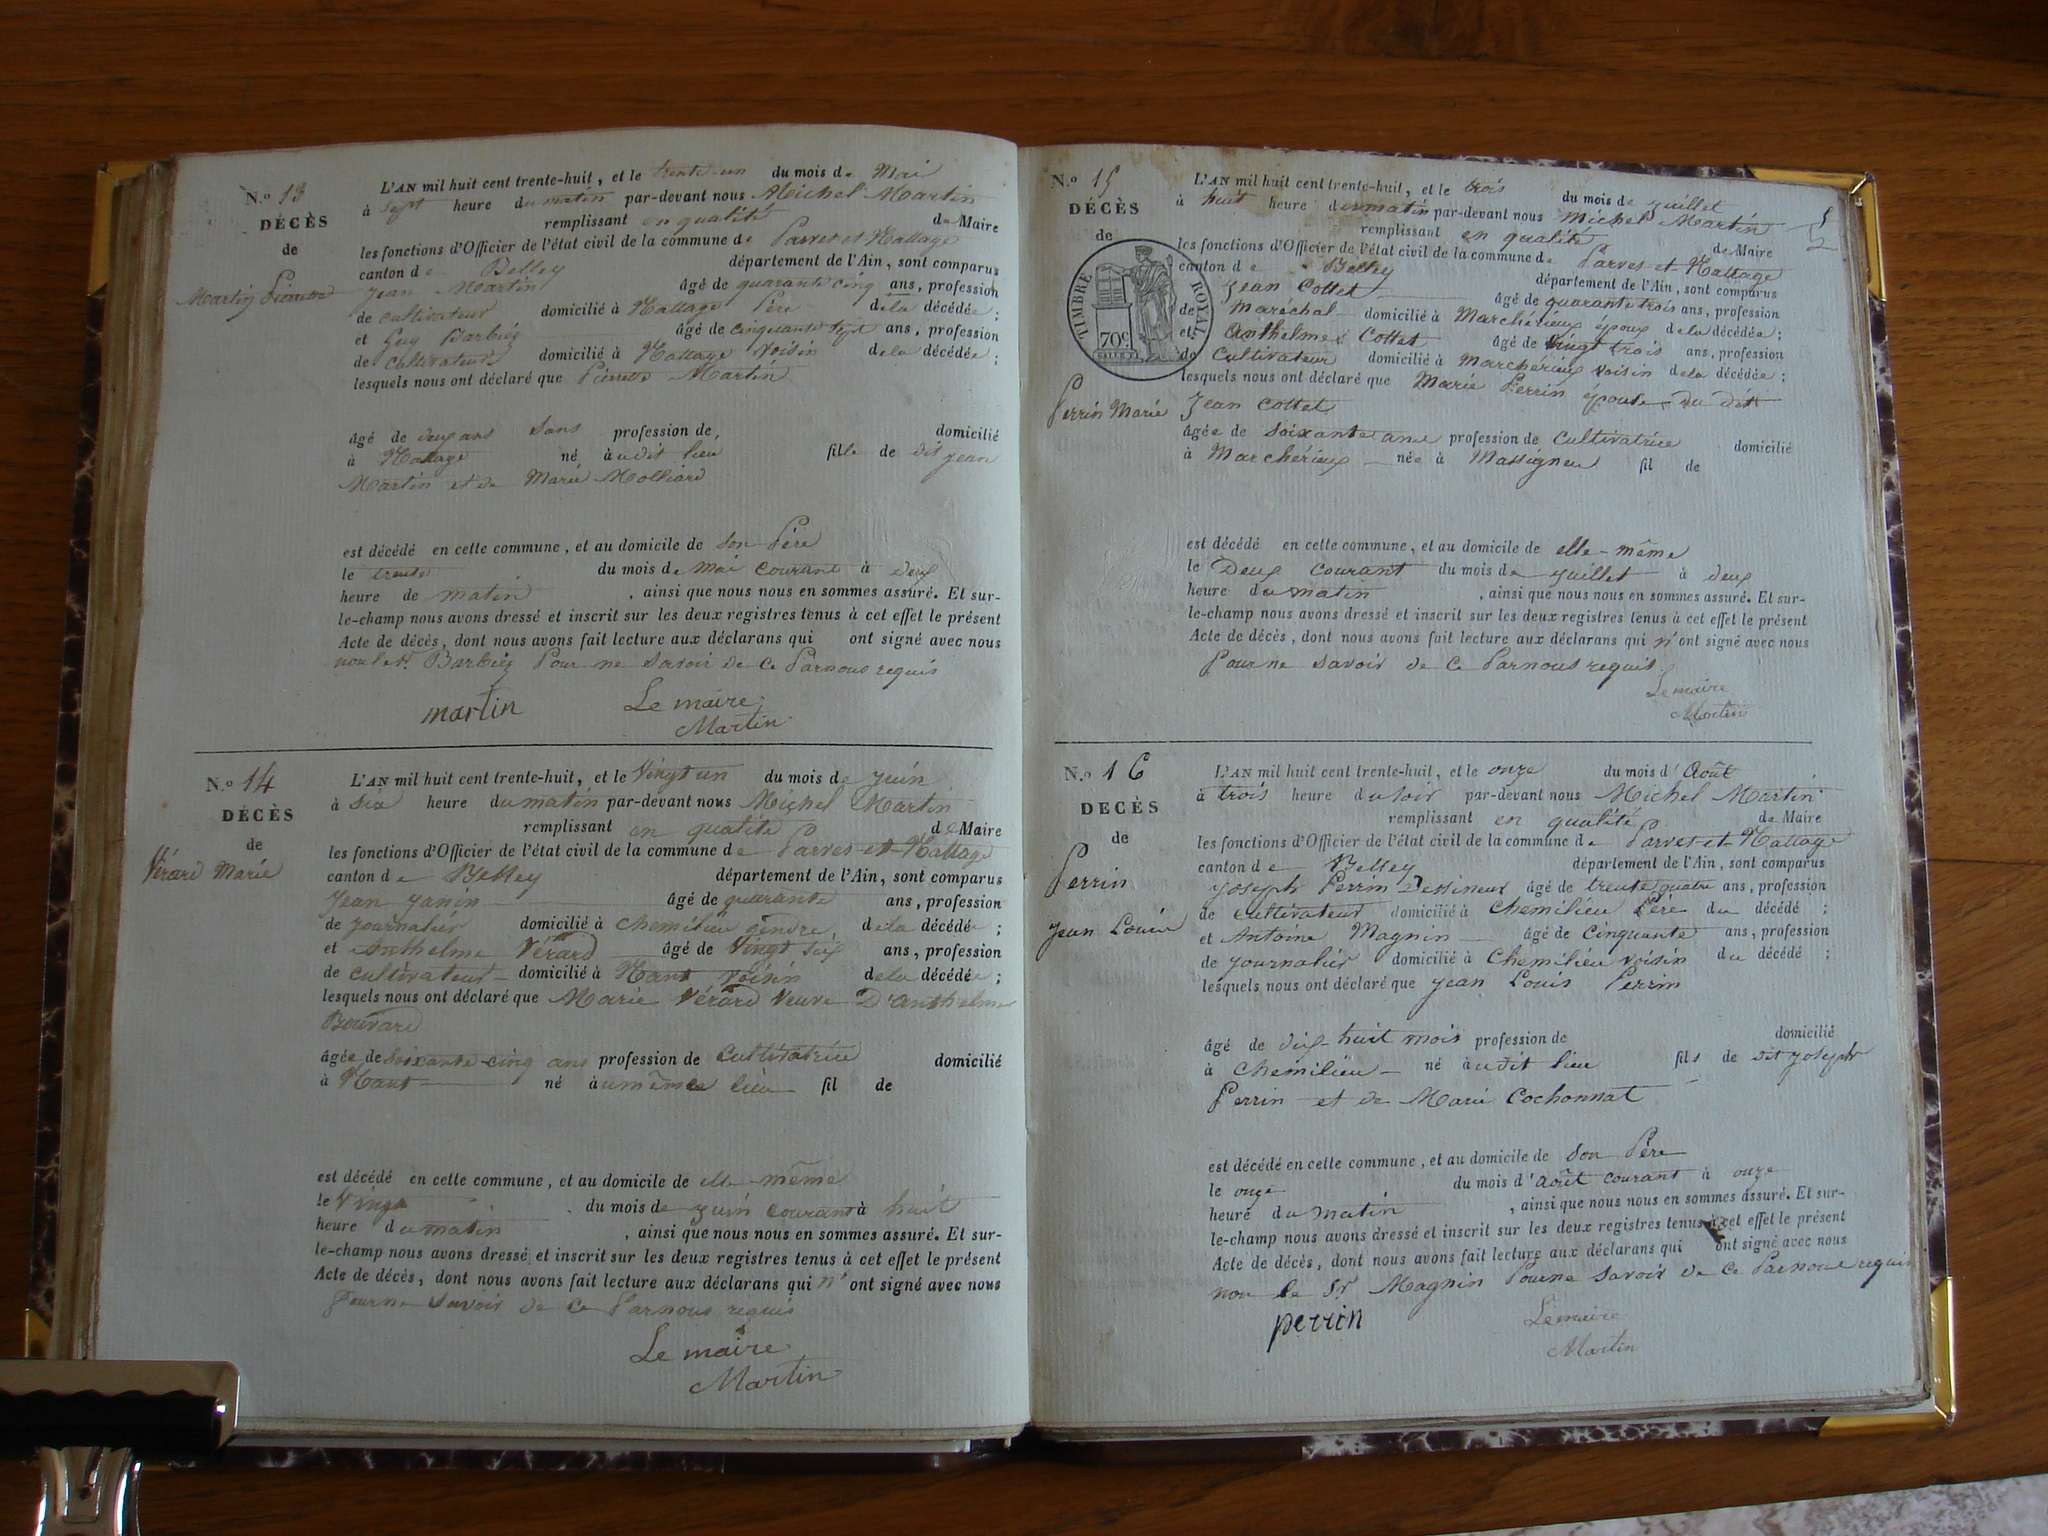 N.º 13
DÉCÈS
de
Martin Pierrette
L'AN mil huit cent trente-huit, et le trente-un du mois de Mai
à sept heure du matin par-devant nous Michel Martin
remplissant en qualité de Maire
les fonctions d'Officier de l'état civil de la commune de Parves et Nattage
canton de Belley département de l'Ain, sont comparus
Jean Martin âgé de quarante cinq ans, profession
de cultivateur domicilié à Nattage Père de la décédée ;
et Guy Barbier âgé de cinquante sept ans, profession
de cultivateur domicilié à Nattage voisin de la décédée ;
lesquels nous ont déclaré que Pierrette Martin
âgé de deux ans sans profession de, domicilié
à Nattage né audit lieu fille de dit jean
Martin et de Marie Molliard
est décédé en cette commune, et au domicile de son Père
le trente du mois de Mai courant à deux
heure de matin , ainsi que nous nous en sommes assuré. Et sur-
le-champ nous avons dressé et inscrit sur les deux registres tenus à cet effet le présent
Acte de décès, dont nous avons fait lecture aux déclarans qui ont signé avec nous
non le sr Barbier Pour ne savoir de ce Par nous requis
martin Le maire
Martin
N.º 14
DÉCÈS
de
Vérard Marie
L'AN mil huit cent trente-huit, et le Vingt un du mois de juin
à six heure du matin par-devant nous Michel Martin
remplissant en qualité de Maire
les fonctions d'Officier de l'état civil de la commune de Parves et Nattage
canton de Belley département de l'Ain, sont comparus
Jean janin âgé de quarante ans, profession
de journalier domicilié à Chemilieu gendre de la décédée ;
et Anthelme Vérard âgé de Vingt six ans, profession
de cultivateur domicilié à Nant voisin de la décédée ;
lesquels nous ont déclaré que Marie Vérard Veuve D'anthelme
Bouvard
âgée de soixante-cinq ans profession de cultivatrice domicilié
à Nant né au même lieu fil de
est décédé en cette commune, et au domicile de elle même
le Vingt du mois de juin courant à huit
heure du matin , ainsi que nous nous en sommes assuré. Et sur-
le-champ nous avons dressé et inscrit sur les deux registres tenus à cet effet le présent
Acte de décès, dont nous avons fait lecture aux déclarans qui n'ont signé avec nous
Pour ne savoir de ce Par nous requis
Le maire
Martin
N.º 15
DÉCÈS
de
TIMBRE ROYAL
70c
Perrin Marie
L'AN mil huit cent trente-huit, et le trois du mois de juillet
à huit heure du matin par-devant nous Michel Martin
remplissant en qualité de Maire
les fonctions d'Officier de l'état civil de la commune de Parves et Nattage
canton de Belley département de l'Ain, sont comparus
Jean Cottet âgé de quarante trois ans, profession
de Maréchal domicilié à Marchérieux époux de la décédée ;
et Anthelme Cottet âgé de Vingt trois ans, profession
de Cultivateur domicilié à Marchérieux voisin de la décédée ;
lesquels nous ont déclaré que Marie Perrin épouse du dit
Jean Cottet
âgée de soixante ans profession de cultivatrice domicilié
à Marchérieux née à Massigneu fil de
est décédé en cette commune, et au domicile de elle-même
le Deux courant du mois de juillet à deux
heure du matin , ainsi que nous nous en sommes assuré. Et sur-
le-champ nous avons dressé et inscrit sur les deux registres tenus à cet effet le présent
Acte de décès, dont nous avons fait lecture aux déclarans qui n'ont signé avec nous
Pour ne savoir de ce Par nous requis
Le maire
Martin
N.º 16
DECÈS
de
Perrin
Jean Louis
L'AN mil huit cent trente-huit, et le onze du mois d'Août
à trois heure du soir par-devant nous Michel Martin
remplissant en qualité de Maire
les fonctions d'Officier de l'état civil de la commune de Parves et Nattage
canton de Belley département de l'Ain, sont comparus
Joseph Perrin Dessineur âgé de trente quatre ans, profession
de cultivateur domicilié à Chemilieu Père du décédé ;
et Antoine Magnin âgé de cinquante ans, profession
de journalier domicilié à Chemilieu voisin du décédé ;
lesquels nous ont déclaré que Jean Louis Perrin
âgé de dix-huit mois profession de domicilié
à Chemilieu né audit lieu fils de dit joseph
Perrin et de Marie Cochonnat
est décédé en cette commune, et au domicile de son Père
le onze du mois d'août courant à onze
heure du matin , ainsi que nous nous en sommes assuré. Et sur-
le-champ nous avons dressé et inscrit sur les deux registres tenus à cet effet le présent
Acte de décès, dont nous avons fait lecture aux déclarans qui ont signé avec nous
non le Sr Magnin Pour ne savoir de ce Par nous requis
perrin Le maire
Martin